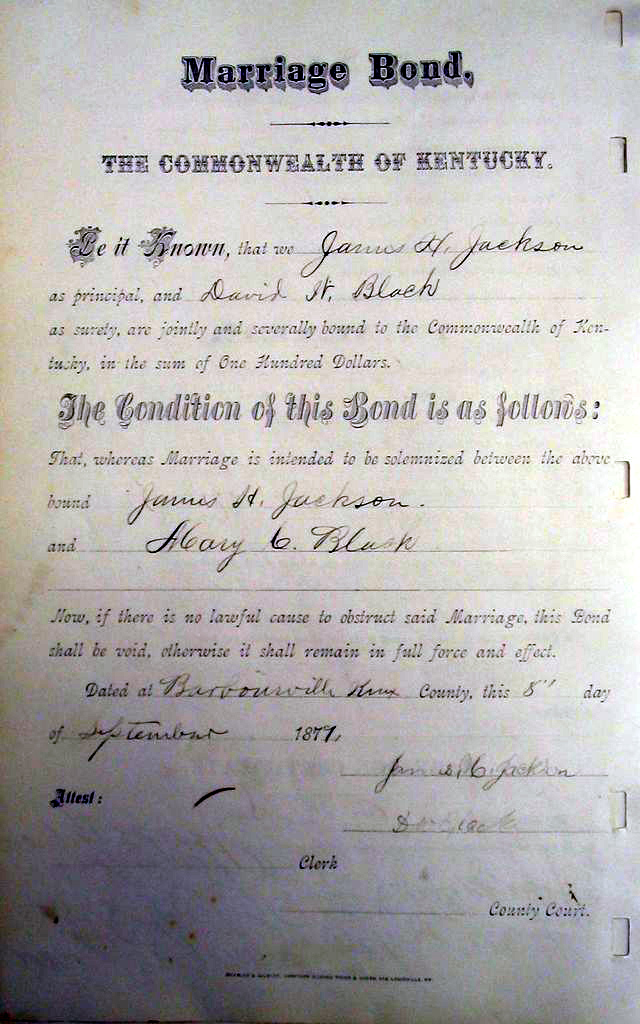 Marriage Bond,
THE COMMONWEALTH OF KENTUCKY.
Be it Known, that we James H. Jackson
as principal, and David W. Black
as surety, are jointly and severally bound to the Commonwealth of Ken-
tucky, in the sum of One Hundred Dollars.
The Condition of this Bond is as follows:
That, whereas Marriage is intended to be solemnized between the above
bound James H. Jackson.
and Mary C. Black
Now, if there is no lawful cause to obstruct said Marriage, this Bond
shall be void, otherwise it shall remain in full force and effect.
Dated at Barbourville Knox County, this 8" day
of September 1877,
James H. Jackson
Attest:
D W Black
Clerk
County Court.